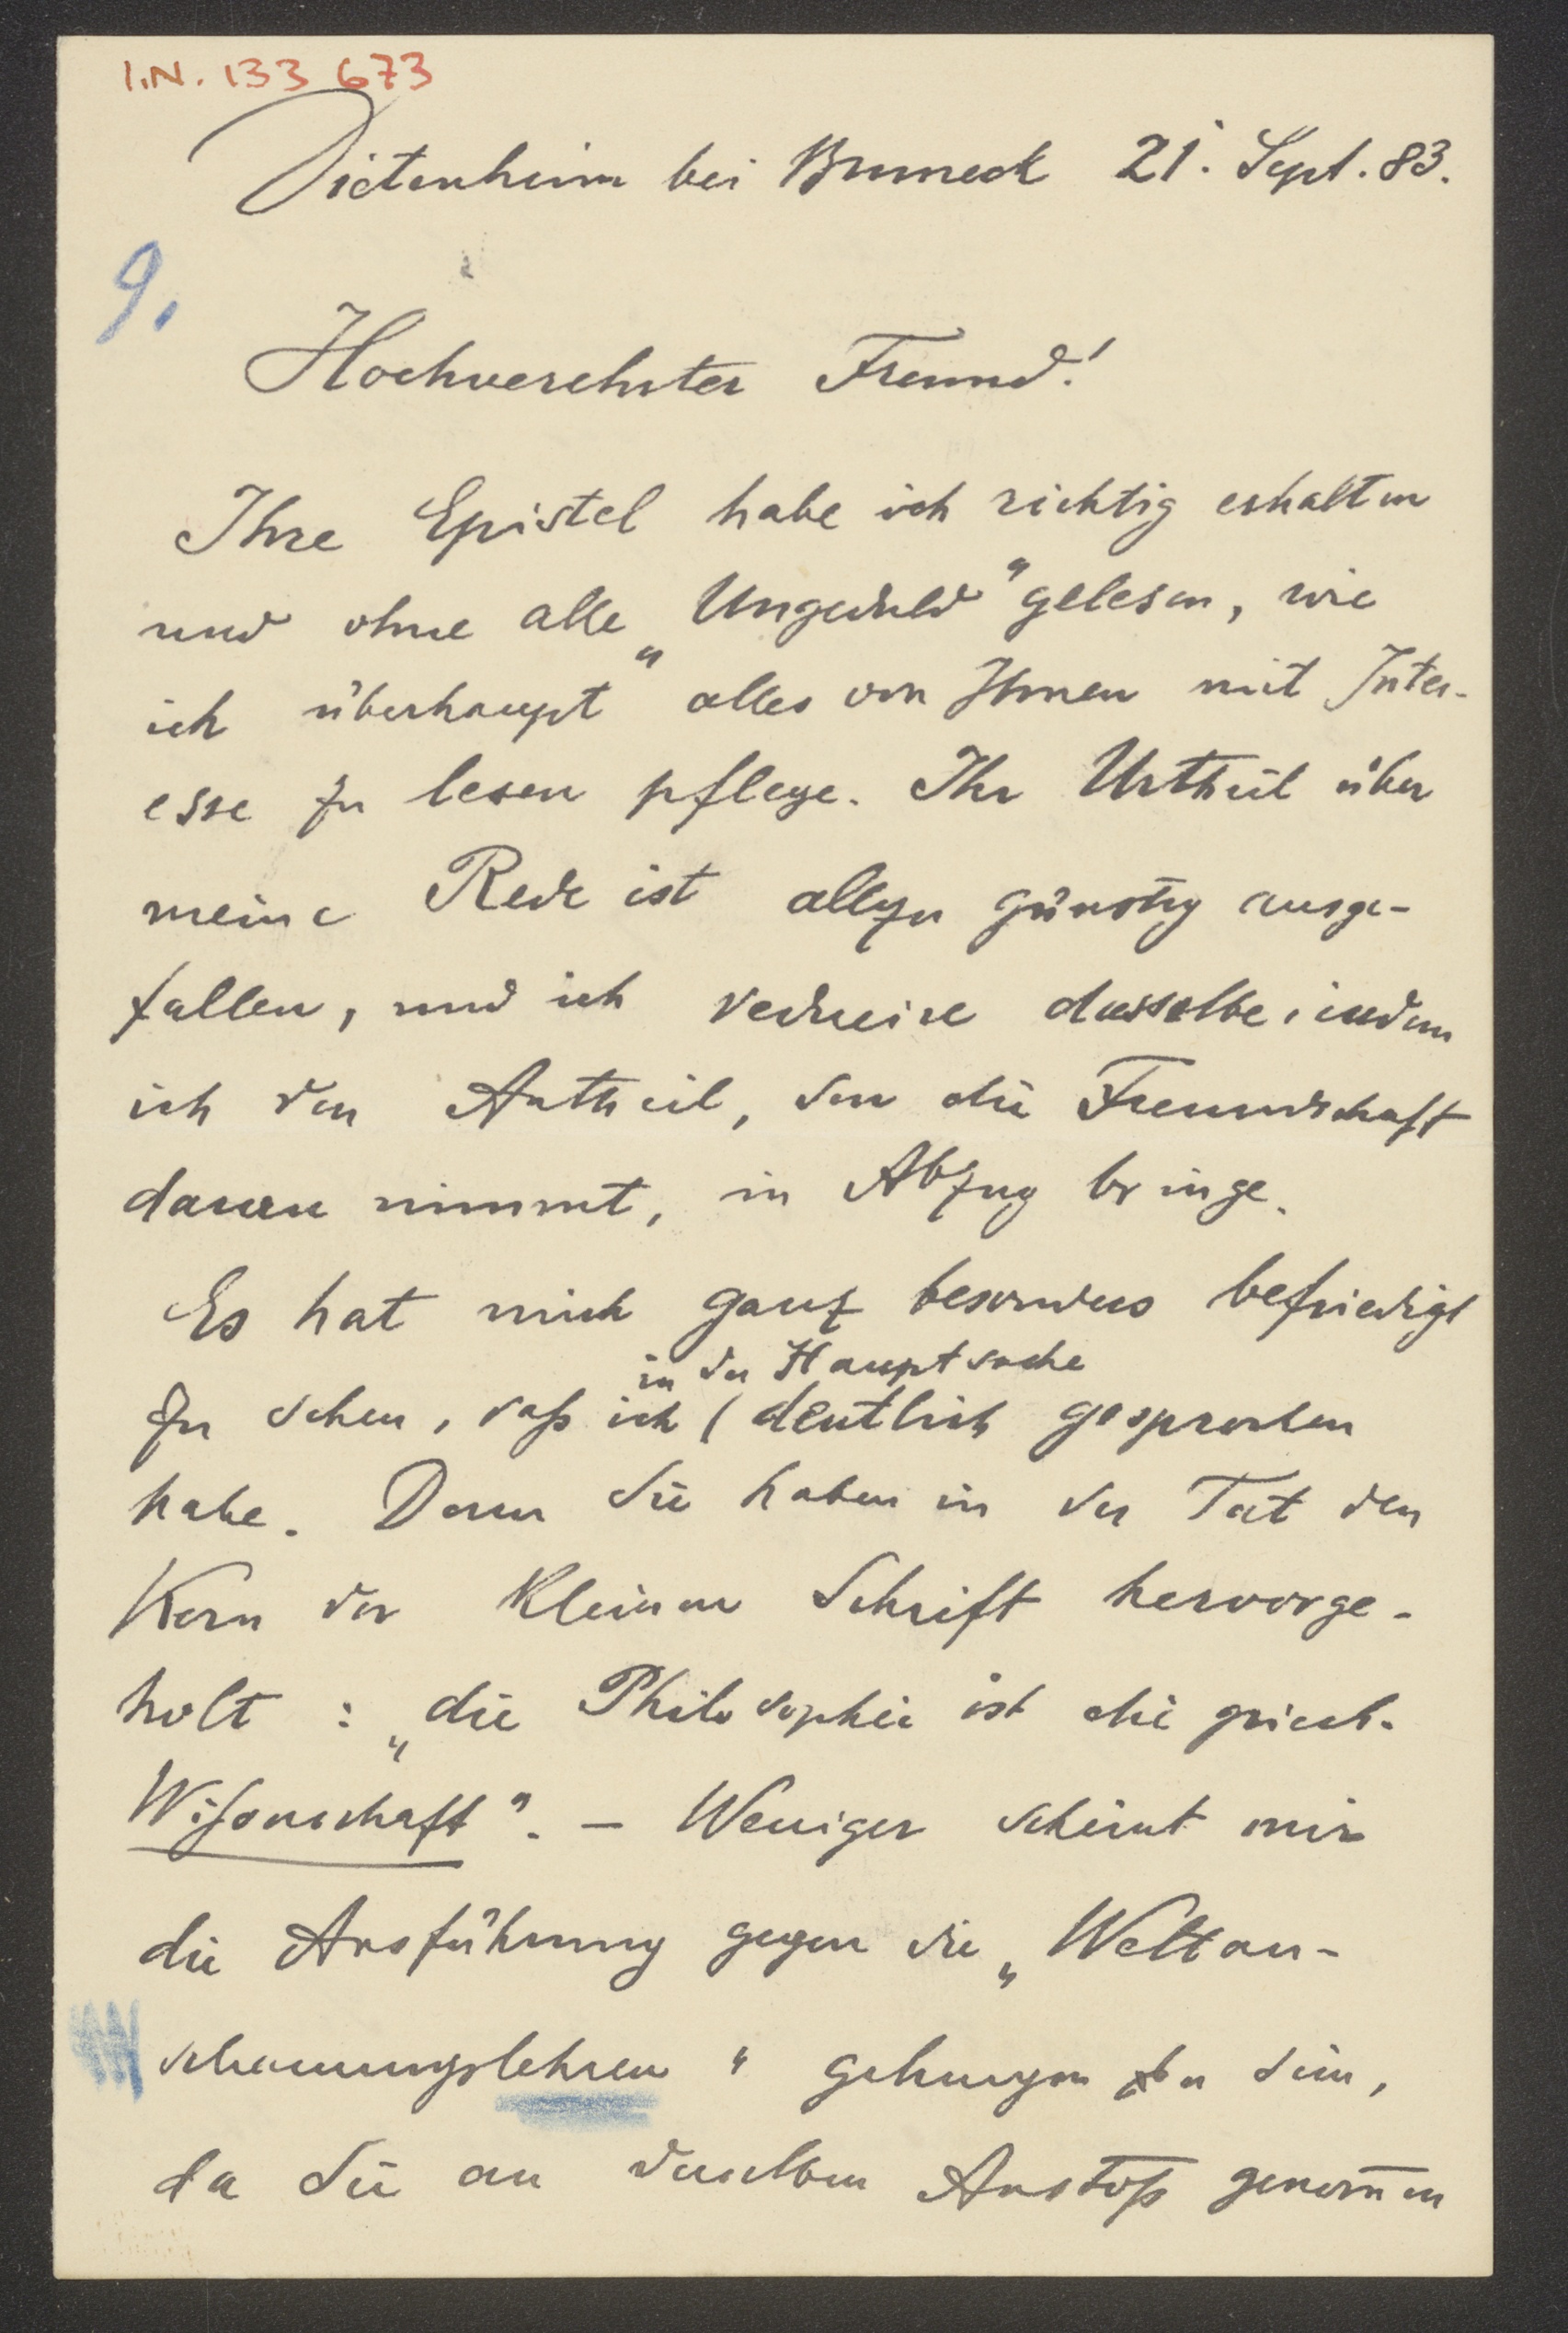 I.N. 133 673
Dietenheim bei Bruneck 21. Sept. 83.
9.
Hochverehrter Freund!
Ihre Epistel habe ich richtig erhalten
und ohne alle „Ungeduld" gelesen, wie
ich überhaupt alles von Ihnen mit Inter-
esse zu lesen pflege. Ihr Urtheil über
meine Rede ist allzu günstig ausge-
fallen, und ich dasselbe, indem
ich den Antheil, den die Freundschaft
daran nimmt, in Abzug bringe.
Es hat mich ganz besonders befriedigt
in der Hauptsache
zu sehen, daß ich ( deutlich gesprochen
habe. Denn Sie haben in der Tat den
Kern der kleinen Schrift hervorge-
holt : „die Philosophie ist die griech.
Wißenschaft". – Weniger scheint mir
die Ausführung gegen die „Weltan-
schauungslehren" gelungen zu sein,
da Sie an derselben Anstoß genom̅en